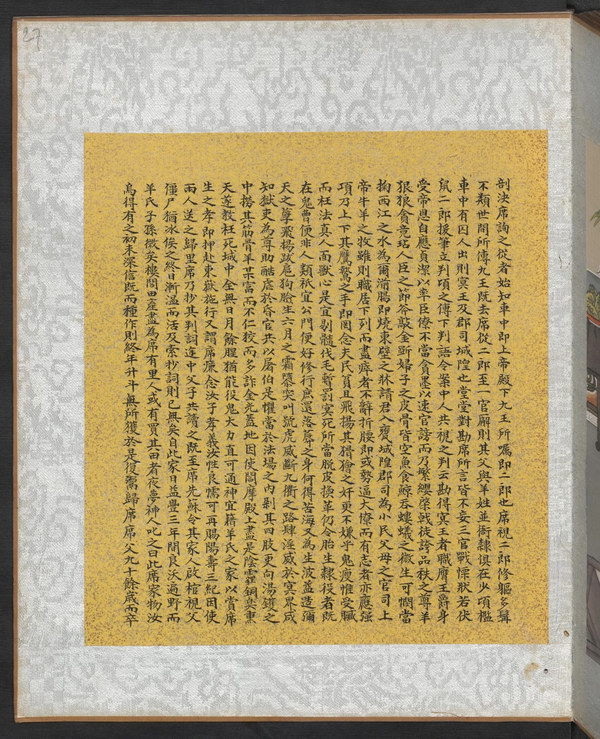 27
剖決席詢之從者始知車中即上帝殿下九王所囑即二郎也席視二郎修軀多髯
不類世間所傳九王既去席從二郎至一官廨則其父與羊姓並衙隸俱在少項檻
車中有囚人出則冥王及郡司城隍也當堂對勘席所言皆不妄三官戰慄狀若伏
鼠二郎援筆立判項之傳下判語令案中人共視之判云勘得冥王者職膺王爵身
受帝恩自應貞潔以率臣僚不當貪墨以速官謗而乃繁纓棨戟徒誇品秩之尊羊
狠狼貪竟玷人臣之節斧敲斲婦子之皮骨皆空魚食鯨吞螻蟻之微生可憫當
掬西江之水為爾湔腸即燒東壁之牀請君入甕城隍郡司為小民父母之官司上
帝牛羊之牧雖則職居下列而盡瘁者不辭折腰即或勢逼大僚而有志者亦應强
項乃上下其鷹鷙之手即罔念夫民貧且飛揚其狙獪之奸更不嫌乎鬼瘦惟受贓
而枉法真人面而獸心是宜剔髓伐毛暫罰冥死所當脫皮換革仍令胎生隸役者既
在鬼曹便非人類祇宜公門便好修行庶還落蓐之身何得苦海又為生波益造彌
天之孽飛揚跋扈狗臉生六月之霜隳突叫號虎威斷九衢之路肆淫威於冥界咸
知獄吏為尊助酷虐於昏官共以屠伯是懼當於法場之內剁其四肢更向湯鑊之
中撈其筋骨羊某富而不仁狡而多詐金光蓋地因使閻摩殿上盡是陰霾銅臭熏
天遂教枉死城中全無日月餘腥猶能役鬼大力直可通神宜籍羊氏之家以賞席
生之孝即押赴東嶽施行又謂席廉念汝子孝義汝性良懦可再賜陽壽三紀因使
兩人送之歸里席乃抄其判詞途中父子共讀之既至席先蘇令其家人啟棺視父
僵尸猶冰俟之終日漸溫而活及索抄詞則已無矣自此家日益豐三年間良沃遍野而
羊氏子孫微矣樓閣田產盡為席有里人或有買其田者夜夢神人叱之曰此席家物汝
烏得有之初未深信既而種作則終年升斗無所獲於是復鬻歸席席父九十餘歲而卒